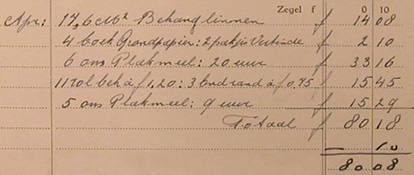 Zegel f 0 10
Apr: 17,6 M² Behanglinnen f 14 08
4 boek Grondpapier: 2 pakjes f 2 10
6 ons Plakmeel: 20 uur f 33 16
11 rol beh à f 1,20: 3 bnd rand à f 0,75 f 15 45
5 ons Plakmeel: 9 uur f 15 29
Totaal f 80 18
10
80 08